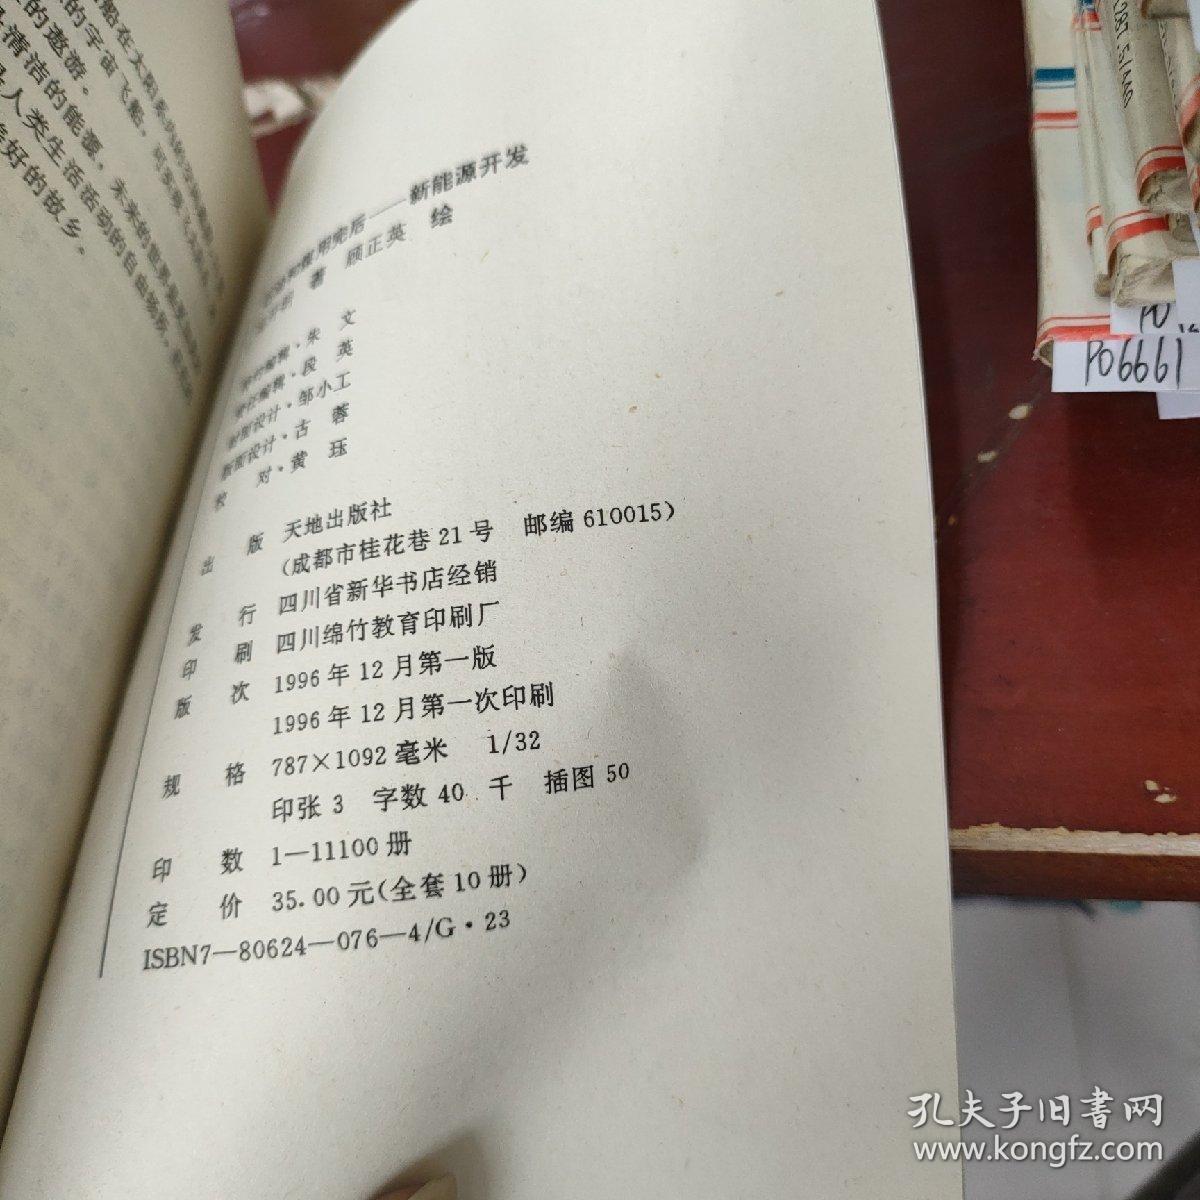 船在太阳系
的宇宙飞船，
的遨游。
清洁的能源，未来的世界
人类生活活动的自由场所，
好的故乡。
用完后——新能源开发
著 顾正英 绘
编辑·朱 文
编辑·段 英
设计·邹小工
版面设计·古 蓉
校 对·黄 珏
出 版 天地出版社
(成都市桂花巷21号 邮编610015)
发 行 四川省新华书店经销
印 刷 四川绵竹教育印刷厂
版 次 1996年12月第一版
1996年12月第一次印刷
规 格 787×1092毫米 1/32
印张 3 字数 40 千 插图 50
印 数 1—11100册
定 价 35.00元(全套10册)
ISBN7—80624—076—4/G·23
287.5/440
P06661
孔夫子旧书网
www.kongfz.com